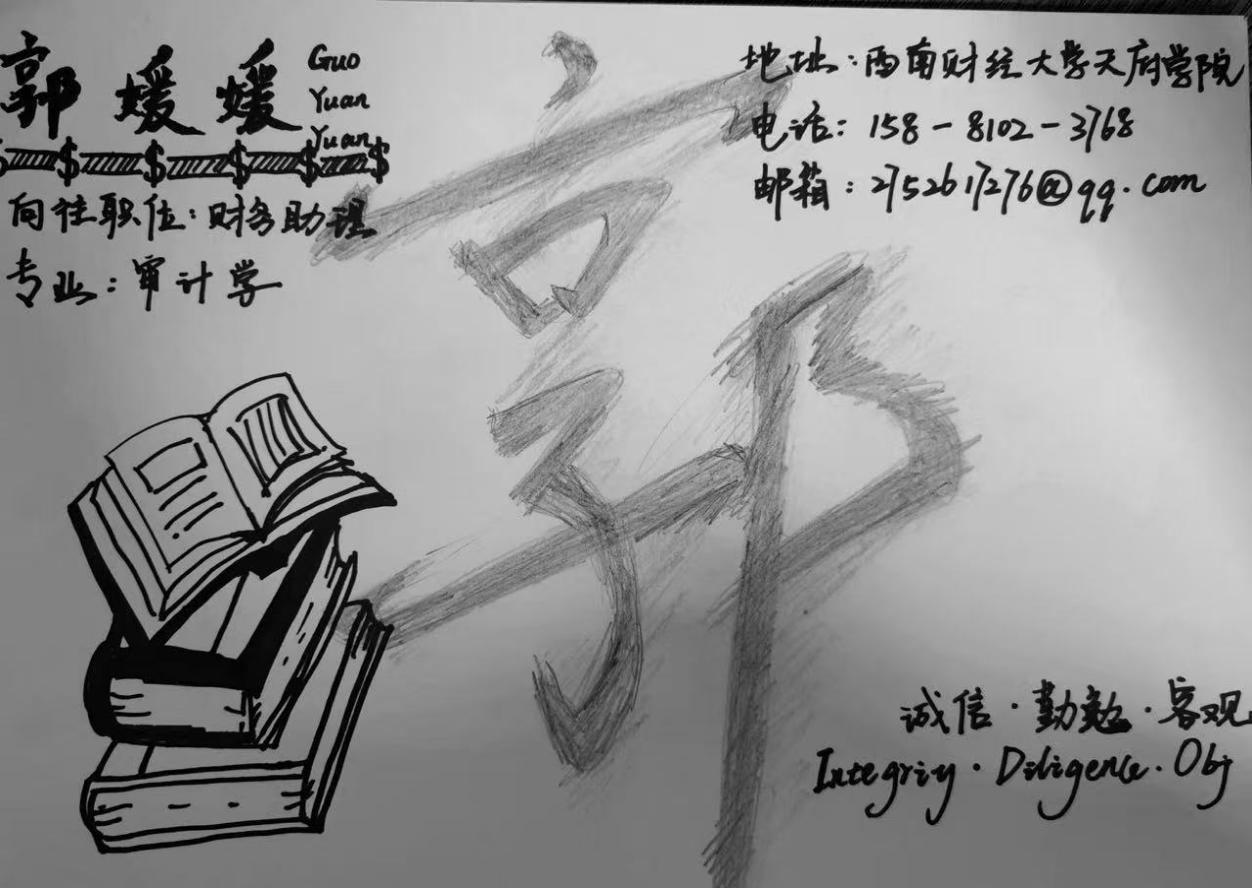 郭媛媛
Guo
Yuan
Yuan
向往职位:财务助理
专业:审计学
地址:西南财经大学天府学院
电话:158-8102-3768
邮箱:2752617276@qq.com
郭
诚信·勤勉·客观
Integrity·Diligence·Obj